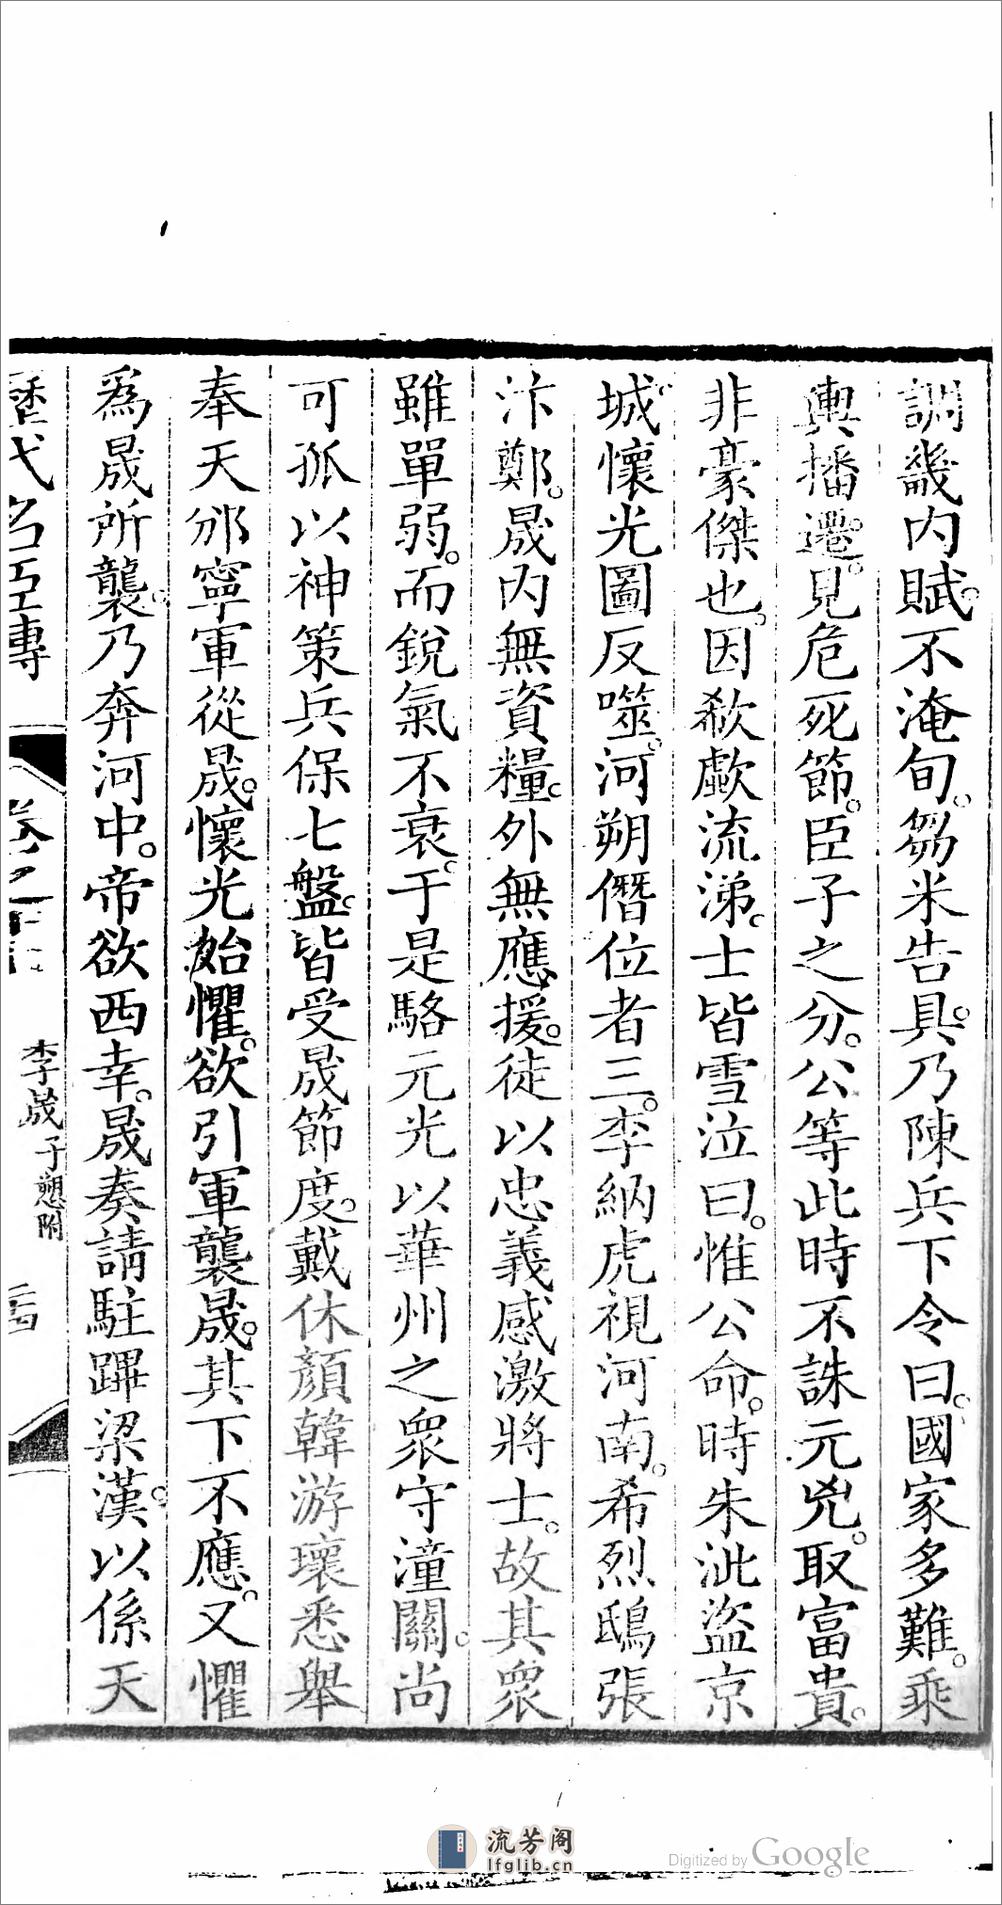 調畿內賦。不淹旬。芻米告具。乃陳兵下令曰。國家多難。乘
輿播遷。見危死節。臣子之分。公等此時不誅元兇。取富貴。
非豪傑也。因欷歔流涕。士皆雪泣曰。惟公命。時朱泚盜京
城。懷光圖反噬。河朔僭位者三。李納虎視河南。希烈鴟張
汴鄭。晟內無資糧。外無應援。徒以忠義感激將士。故其衆
雖單弱。而銳氣不衰。于是駱元光以華州之衆守潼關。尚
可孤以神策兵保七盤。皆受晟節度。戴休顏韓游瓌悉舉
奉天邠寧軍從晟。懷光始懼。欲引軍襲晟。其下不應。又懼
爲晟所襲。乃奔河中。帝欲西幸。晟奏請駐蹕梁漢。以係天
歷代名臣傳
李晟子愬附
流芳阁
lfglib.cn
Digitized by Google